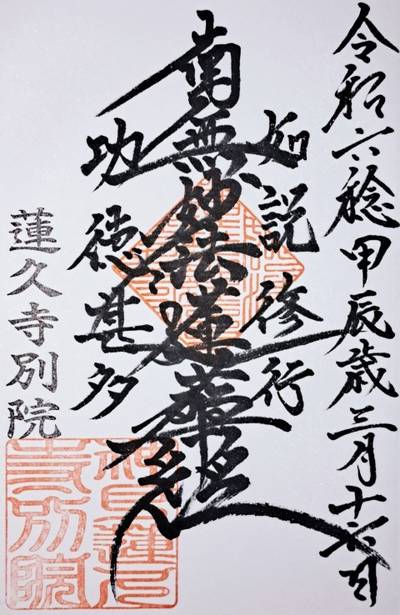 令和六稔甲辰歳三月十六日
如説修行
南無妙法蓮華経
功徳甚多
蓮久寺別院